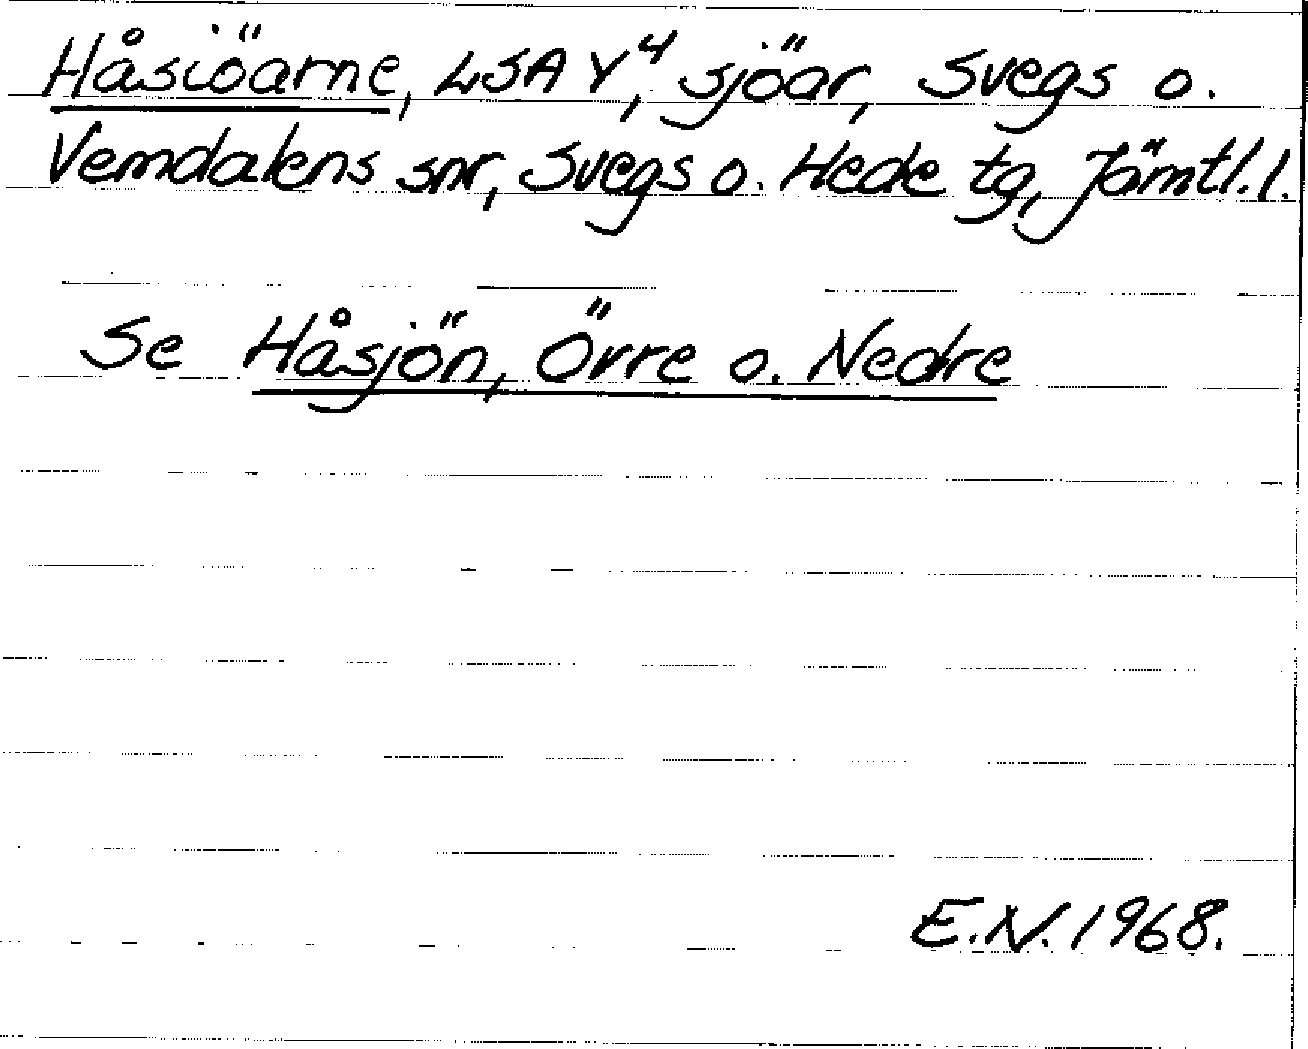 Håsiöarne, LSA Y⁴, sjöar, Svegs o.
Vemdalens snr, Svegs o. Hede tg, Jämtl.l.
Se Håsjön, Övre o. Nedre
E.N. 1968.